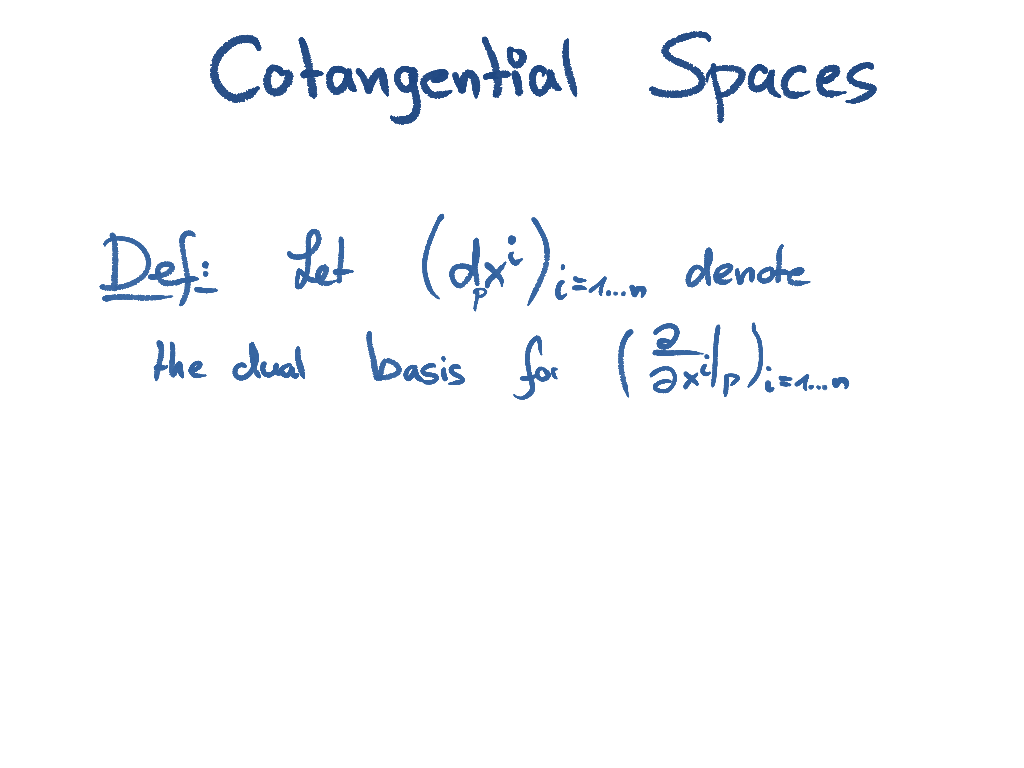 Cotangential Spaces
Def: Let (d_p x^i)_{i=1...n} denote
the dual basis for (∂/∂x^i|_p)_{i=1...n}